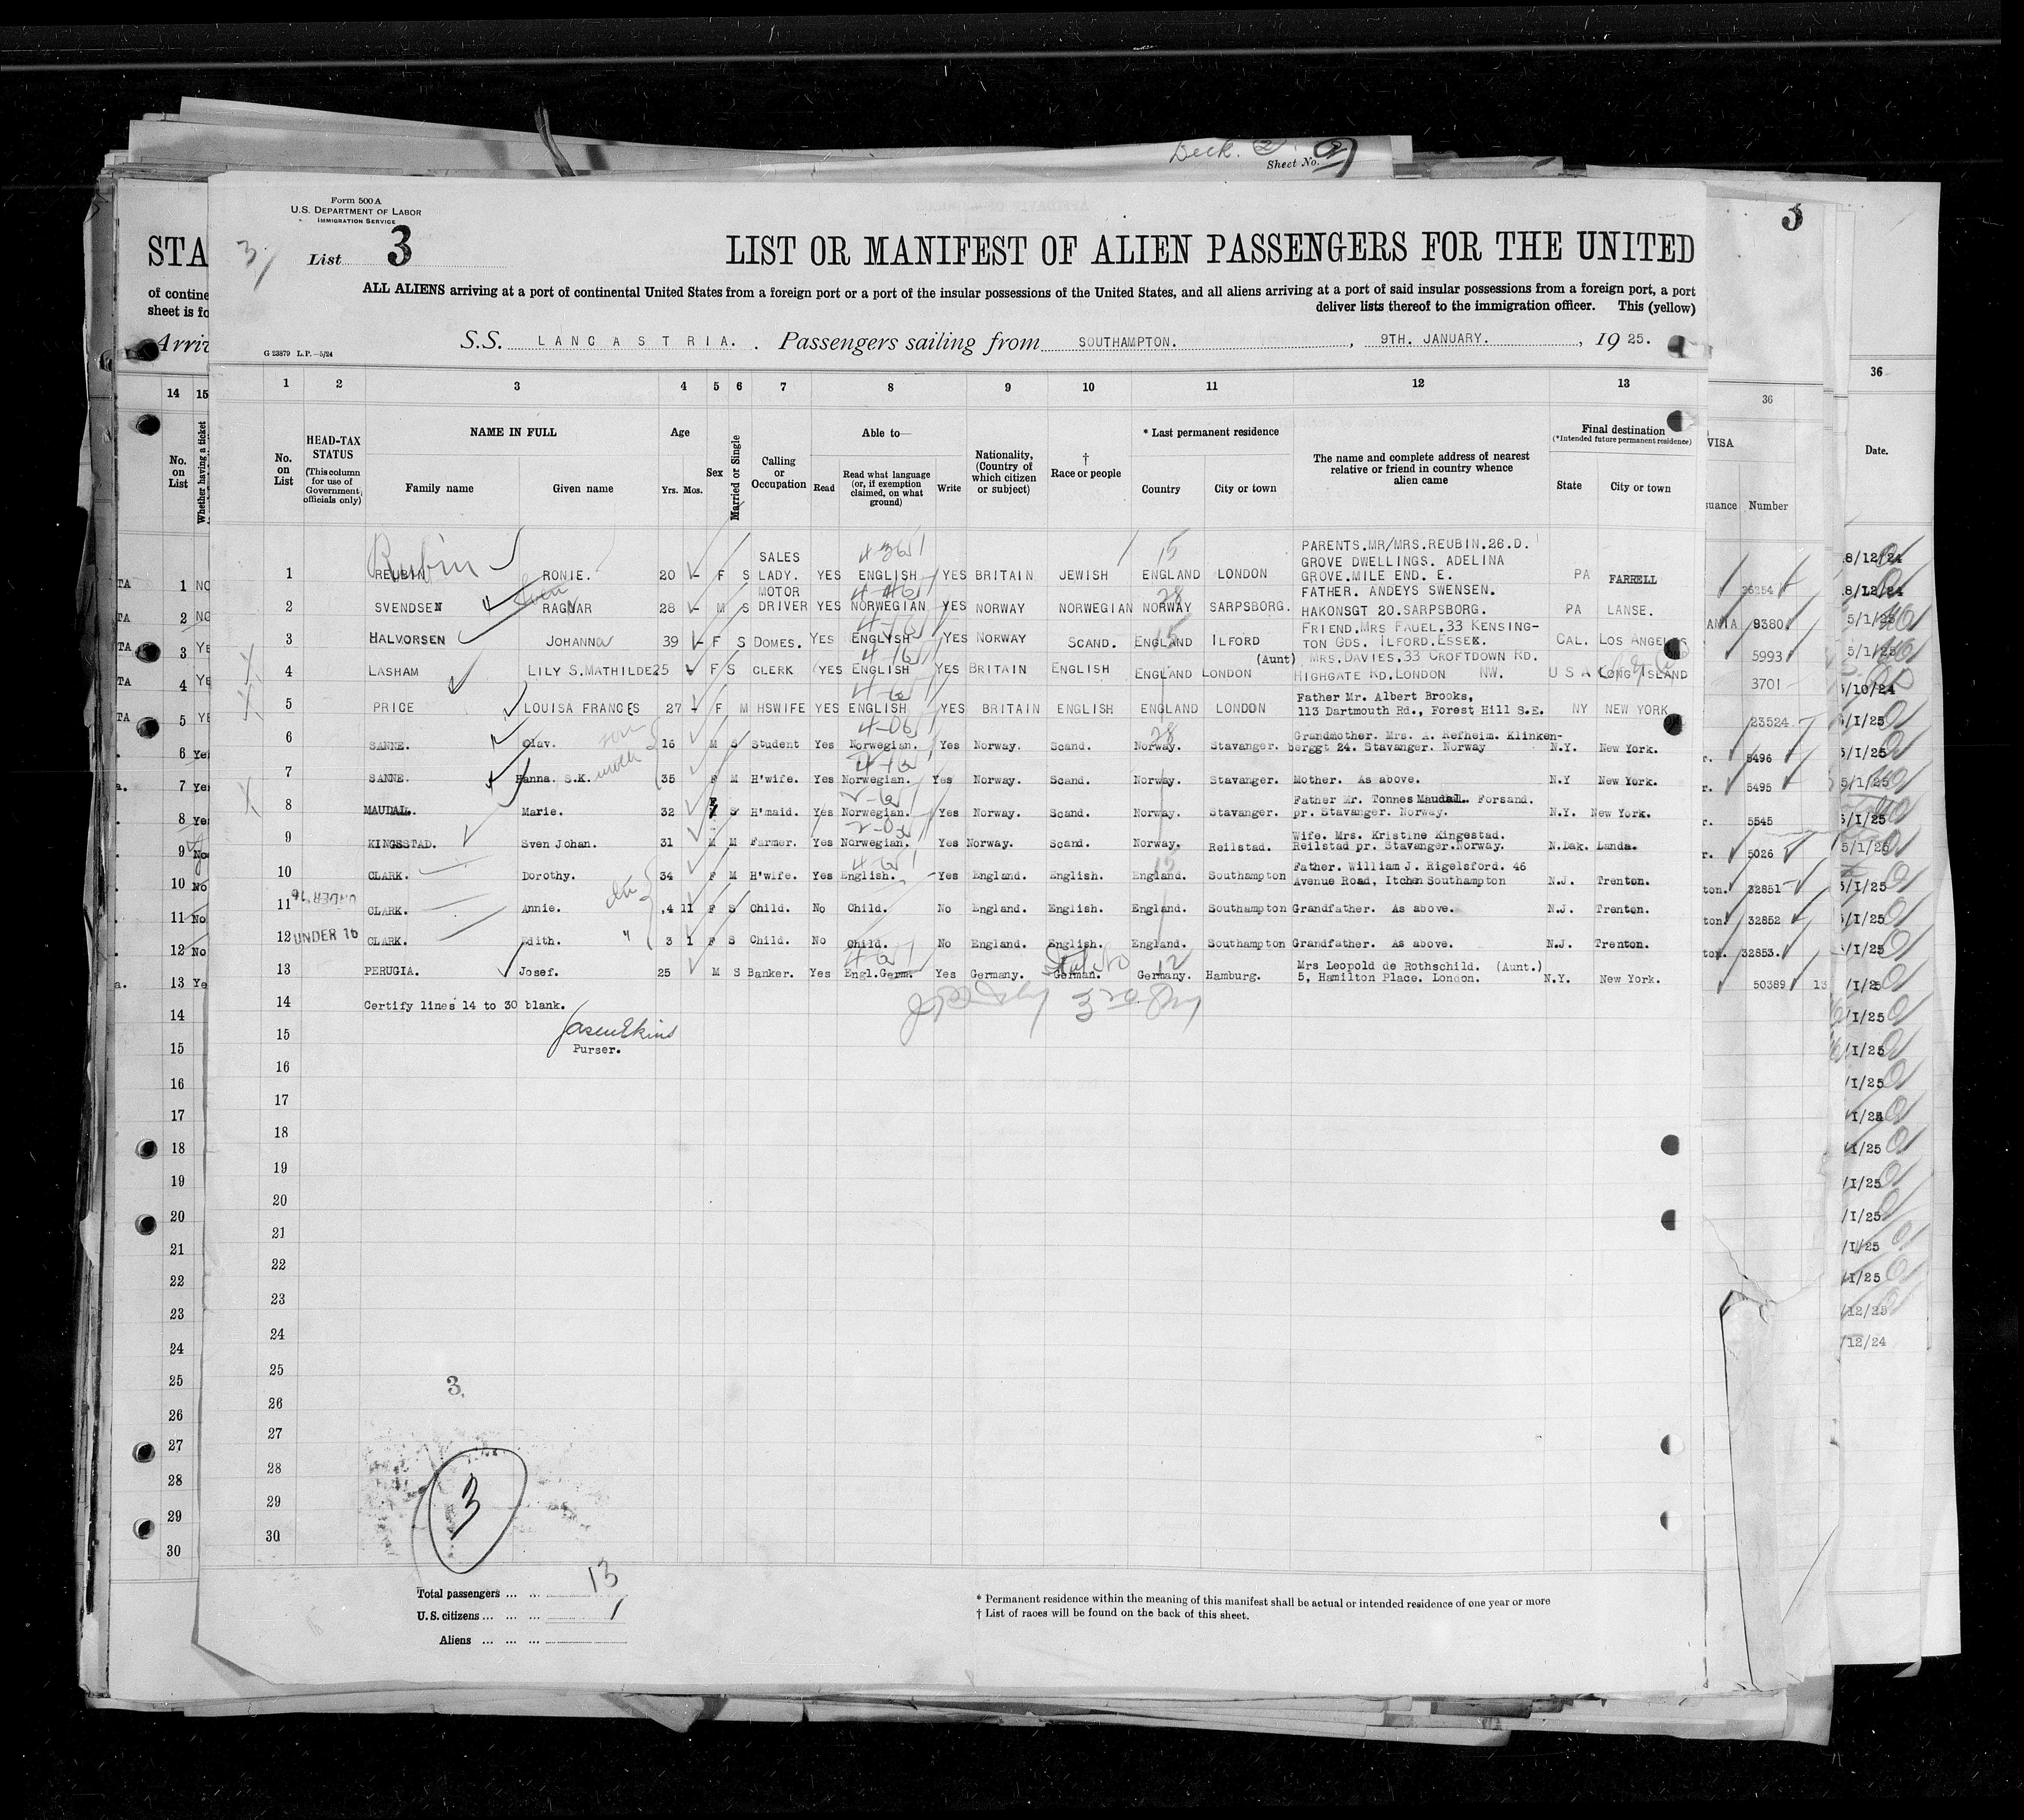 Deck. 2
Sheet No. 2
Form 500 A
U.S. DEPARTMENT OF LABOR
IMMIGRATION SERVICE
3/
List 3
LIST OR MANIFEST OF ALIEN PASSENGERS FOR THE UNITED
ALL ALIENS arriving at a port of continental United States from a foreign port or a port of the insular possessions of the United States, and all aliens arriving at a port of said insular possessions from a foreign port, a port
deliver lists thereof to the immigration officer. This (yellow)
S.S. LANCASTRIA. Passengers sailing from SOUTHAMPTON. , 9TH. JANUARY. , 19 25.
G 23879 L.P.—5/24
1 2 3 4 5 6 7 8 9 10 11 12 13
No. on List
HEAD-TAX STATUS
(This column for use of Government officials only)
NAME IN FULL
Family name
Given name
Age
Yrs. Mos.
Sex
Married or Single
Calling or Occupation
Able to—
Read
Read what language (or, if exemption claimed, on what ground)
Write
Nationality, (Country of which citizen or subject)
† Race or people
* Last permanent residence
Country
City or town
The name and complete address of nearest relative or friend in country whence alien came
Final destination
(*Intended future permanent residence)
State
City or town
Rubin
1 REUBIN RONIE. 20 - F S SALES LADY. YES ENGLISH YES BRITAIN JEWISH ENGLAND LONDON PARENTS.MR/MRS.REUBIN.26.D. GROVE DWELLINGS. ADELINA GROVE.MILE END. E. PA FARRELL
2 SVENDSEN RAGNAR 28 - M S MOTOR DRIVER YES NORWEGIAN YES NORWAY NORWEGIAN NORWAY SARPSBORG. FATHER. ANDEYS SWENSEN. HAKONSGT 20.SARPSBORG. PA LANSE.
3 HALVORSEN JOHANNA 39 - F S DOMES. YES ENGLISH YES NORWAY SCAND. ENGLAND ILFORD FRIEND.MRS FAUEL.33 KENSINGTON GDS. ILFORD.ESSEX. CAL. LOS ANGELES
4 LASHAM LILY S.MATHILDE 25 F S CLERK YES ENGLISH YES BRITAIN ENGLISH ENGLAND LONDON (Aunt) MRS.DAVIES.33 CROFTDOWN RD. HIGHGATE RD.LONDON NW. U S A LONG ISLAND
5 PRICE LOUISA FRANCES 27 - F M HSWIFE YES ENGLISH YES BRITAIN ENGLISH ENGLAND LONDON Father Mr. Albert Brooks, 113 Dartmouth Rd., Forest Hill S.E. NY NEW YORK
6 SANNE. Olav. son 16 M S Student Yes Norwegian. Yes Norway. Scand. Norway. Stavanger. Grandmother. Mrs. A. Refheim. Klinkenberggt 24. Stavanger. Norway N.Y. New York.
7 SANNE. Hanna. S.K. 35 F M H'wife. Yes Norwegian. Yes Norway. Scand. Norway. Stavanger. Mother. As above. N.Y New York.
8 MAUDAL. Marie. 32 F S H'maid. Yes Norwegian. Yes Norway. Scand. Norway. Stavanger. Father Mr. Tonnes Maudal. Forsand. pr. Stavanger. Norway. N.Y. New York.
9 KINGSSTAD. Sven Johan. 31 M M Farmer. Yes Norwegian. Yes Norway. Scand. Norway. Reilstad. Wife. Mrs. Kristine Kingestad. Reilstad pr. Stavanger.Norway. N.Dak. Landa.
10 CLARK. Dorothy. 34 F M H'wife. Yes English. Yes England. English. England. Southampton Father. William J. Rigelsford. 46 Avenue Road, Itchen Southampton N.J. Trenton.
11 UNDER 16 CLARK. Annie. 4 11 F S Child. No Child. No England. English. England. Southampton Grandfather. As above. N.J. Trenton.
12 UNDER 16 CLARK. Edith. " 3 1 F S Child. No Child. No England. English. England. Southampton Grandfather. As above. N.J. Trenton.
13 PERUGIA. Josef. 25 M S Banker. Yes Engl.Germ. Yes Germany. German. Germany. Hamburg. Mrs Leopold de Rothschild. (Aunt.) 5, Hamilton Place. London. N.Y. New York.
14 Certify lines 14 to 30 blank.
15
Purser.
16
17
18
19
20
21
22
23
24
25
26
27
28
29
30
3.
3
Total passengers ... ... 13
U.S. citizens ... ... ... 1
Aliens ... ... ...
* Permanent residence within the meaning of this manifest shall be actual or intended residence of one year or more
† List of races will be found on the back of this sheet.
STA
of contine
sheet is fo
Arriv
14 15
No. on List
Whether having a ticket
3
36
VISA
Number
26254
9380.
5993
3701
23524
5496
5495
5545
5026
32851
32852
32853.
50389 13
36
Date.